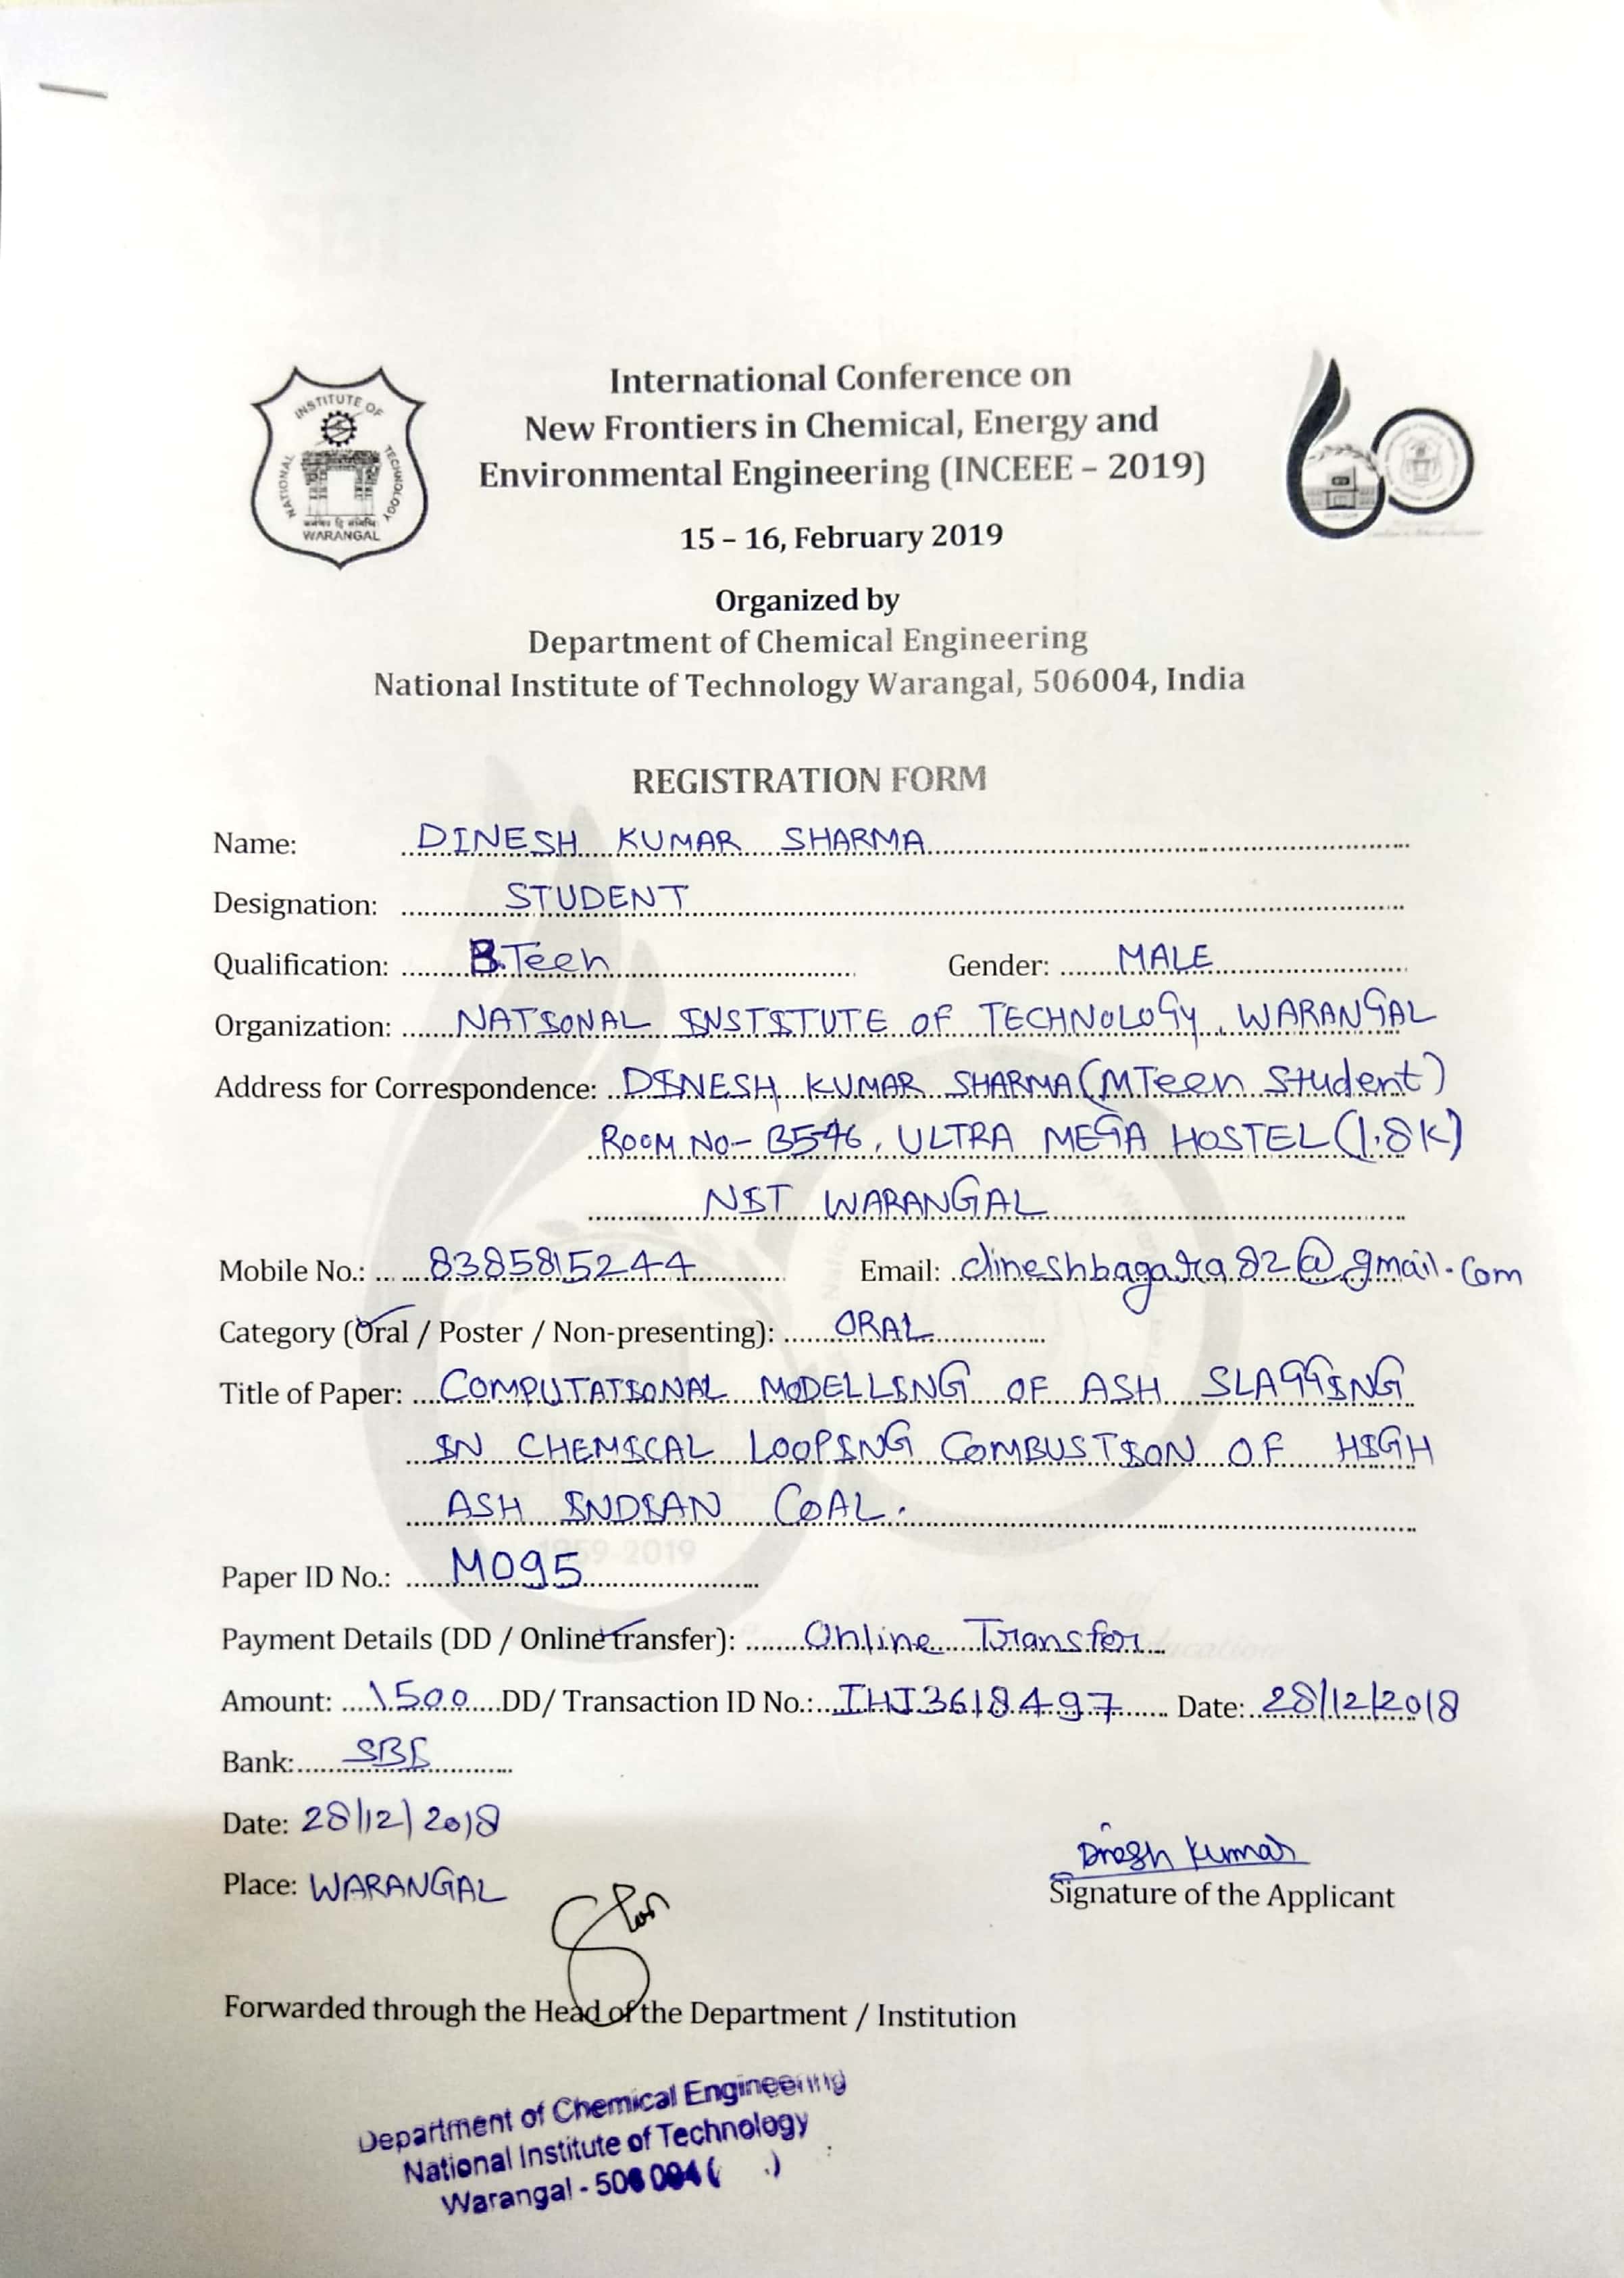 International Conference on
New Frontiers in Chemical, Energy and
Environmental Engineering (INCEEE – 2019)
15 – 16, February 2019
Organized by
Department of Chemical Engineering
National Institute of Technology Warangal, 506004, India
NATIONAL INSTITUTE OF TECHNOLOGY
WARANGAL
REGISTRATION FORM
Name: DINESH KUMAR SHARMA
Designation: STUDENT
Qualification: B.Tech Gender: MALE
Organization: NATIONAL INSTITUTE OF TECHNOLOGY, WARANGAL
Address for Correspondence: DINESH KUMAR SHARMA (MTech Student)
ROOM NO- B546, ULTRA MEGA HOSTEL (1.8K)
NIT WARANGAL
Mobile No.: 8385815244 Email: dineshbagara82@gmail.com
Category (Oral / Poster / Non-presenting): ORAL
Title of Paper: COMPUTATIONAL MODELLING OF ASH SLAGGING
IN CHEMICAL LOOPING COMBUSTION OF HIGH
ASH INDIAN COAL.
1959-2019
Paper ID No.: M095
Payment Details (DD / Online transfer): Online Transfer
Amount: 1500 DD/ Transaction ID No.: IHJ3618497 Date: 28/12/2018
Bank: SBI
Date: 28/12/2018
Place: WARANGAL
Dinesh Kumar
Signature of the Applicant
Forwarded through the Head of the Department / Institution
Department of Chemical Engineering
National Institute of Technology
Warangal - 506 004 ( .)